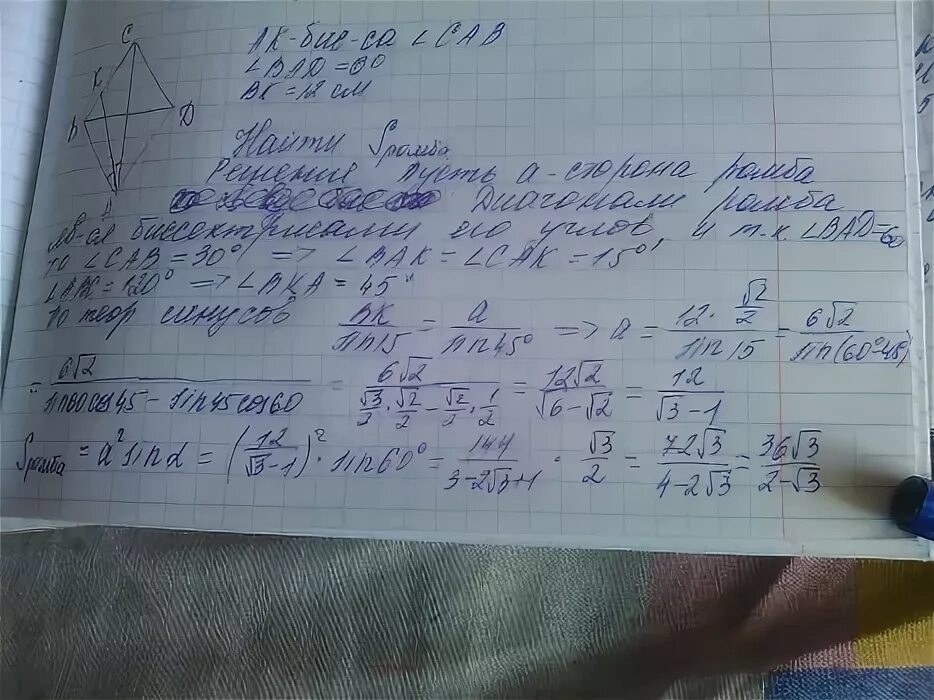 C
K
B
D
A
AK-бис-са ∠CAB
∠BAD = 60
BK = 12 см
Найти Sромба
Решение Пусть a - сторона ромба
Диагонали ромба
яв-ся биссектрисами его углов, и т.к. ∠BAD=60
то ∠CAB = 30° ⇒ ∠BAK = ∠CAK = 15°,
∠ABC = 120° ⇒ ∠BKA = 45°
по теор синусов BK/sin15 = a/sin45° ⇒ a = (12 · √2/2)/sin15 = 6√2/sin(60°-45)
= 6√2/(sin60cos45 - sin45cos60) = 6√2/(√3/2 · √2/2 - √2/2 · 1/2) = 12√2/(√6 - √2) = 12/(√3 - 1)
Sромба = a² sin α = (12/(√3 - 1))² · sin 60° = 144/(3 - 2√3 + 1) · √3/2 = 72√3/(4 - 2√3) = 36√3/(2 - √3)